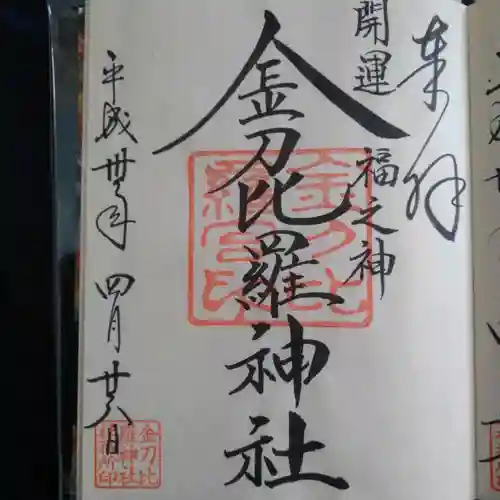 奉拝
開運
福之神
金刀比羅神社
平成卅年四月廿八日
金刀比
羅宮印
金刀比
羅神社